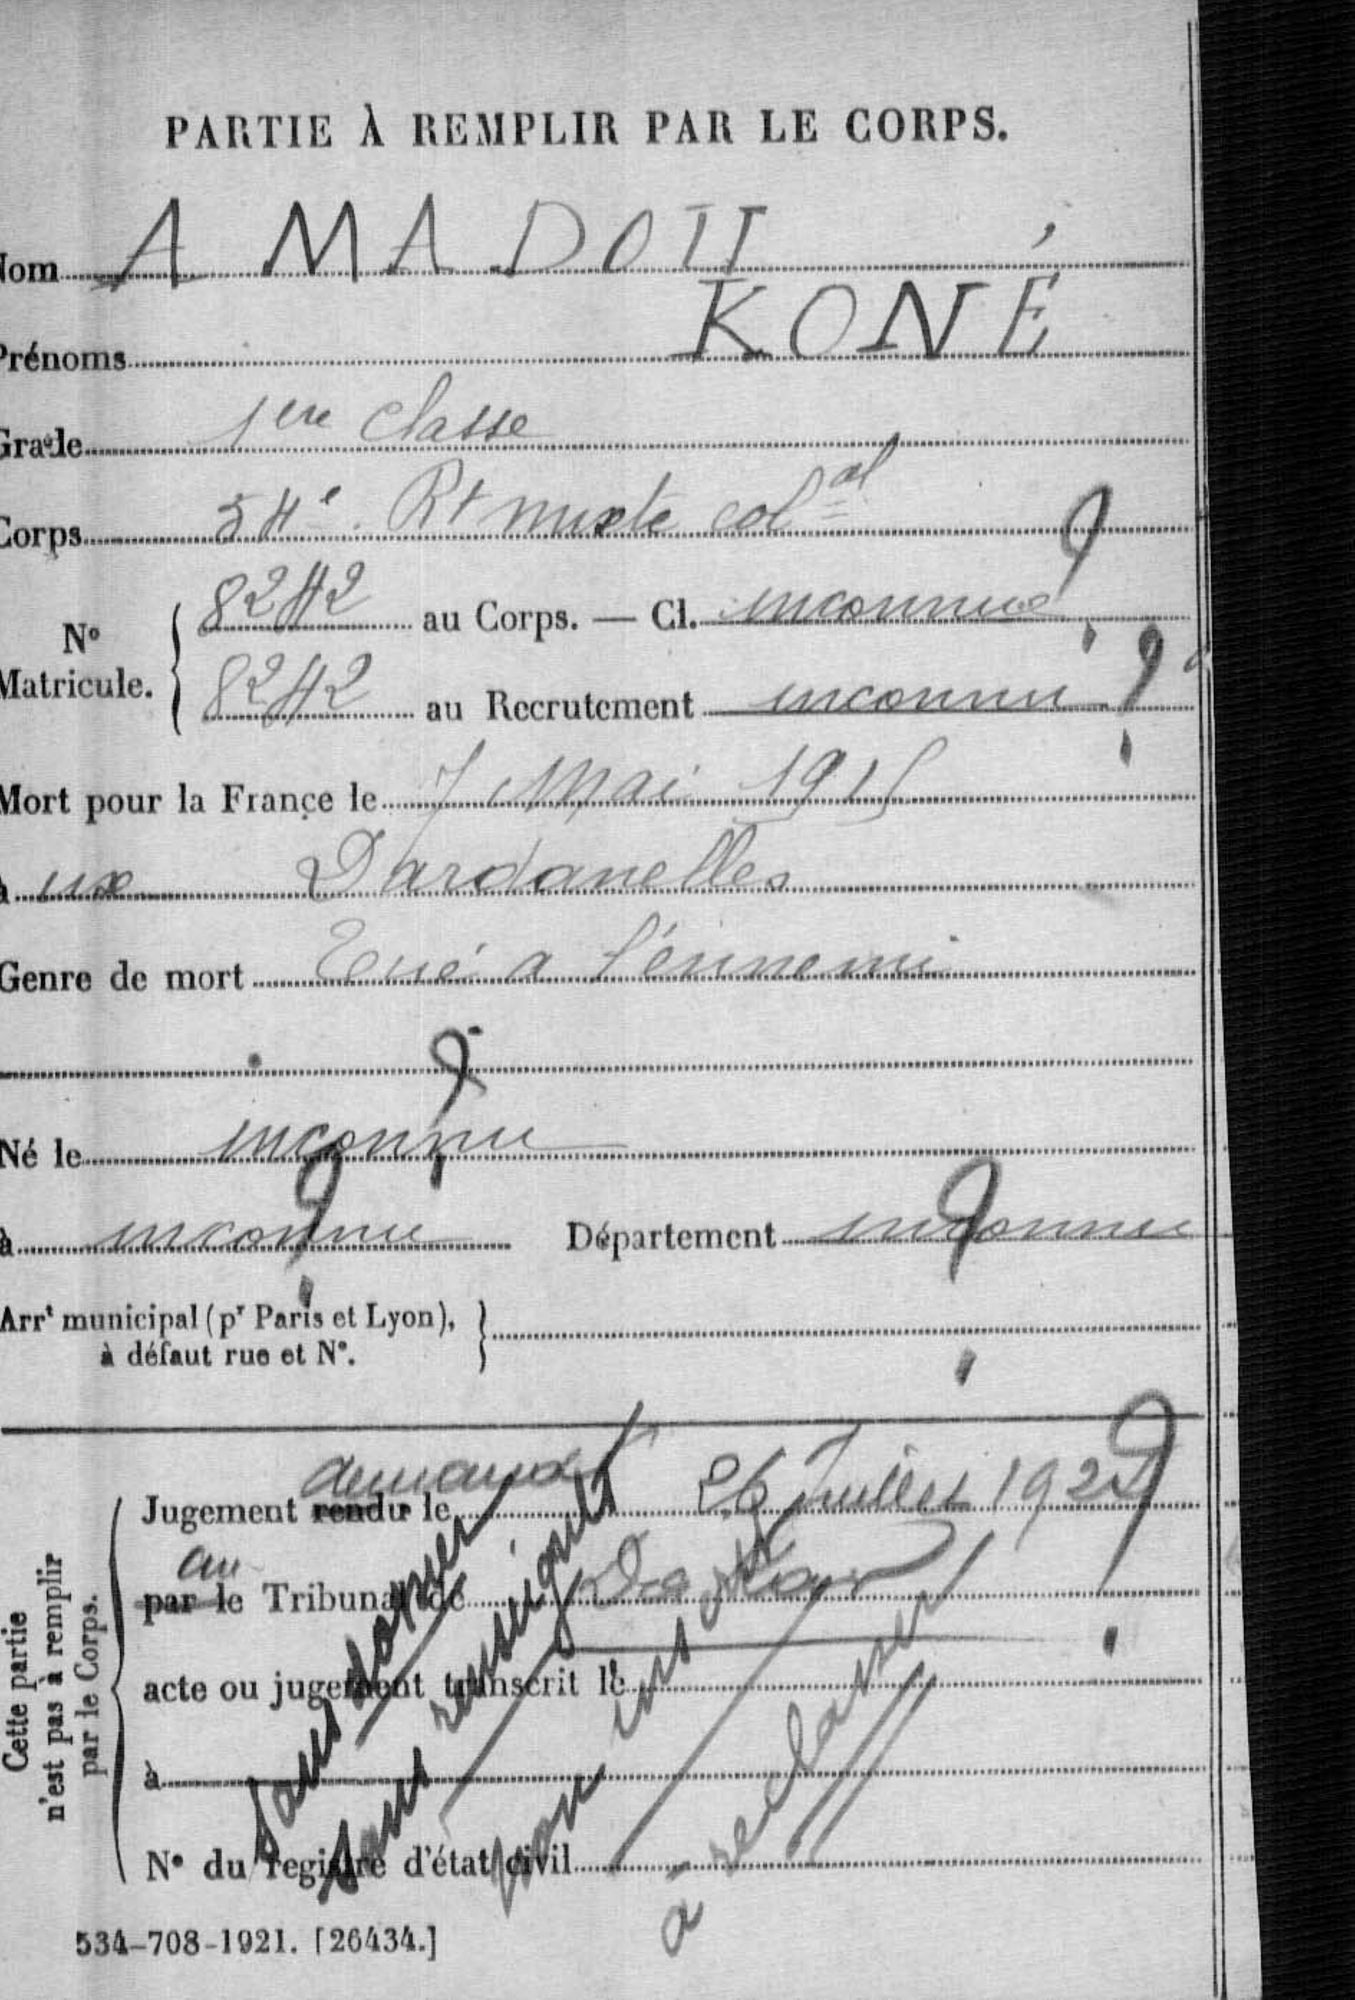 PARTIE À REMPLIR PAR LE CORPS.
Nom AMADOU
Prénoms KONÉ
Grade 1ere classe
Corps 54e Rt mixte colal
No Matricule. 8242 au Corps. — Cl. inconnue ?
8242 au Recrutement inconnu ?
Mort pour la France le 7 Mai 1915
à ux Dardanelles
Genre de mort Tué a l'énnemi
Né le inconnu ?
à inconnu ? Département inconnu ?
Arrt municipal (pr Paris et Lyon),
à défaut rue et No.
Cette partie
n'est pas à remplir
par le Corps.
demandé
Jugement rendu le 26 Juillet 192 ?
au
par le Tribunal de Dakar
acte ou jugement transcrit le
à
No du registre d'état civil
sans dossier
sans renseignts
non inscrit
à reclasser
534-708-1921. [26434.]